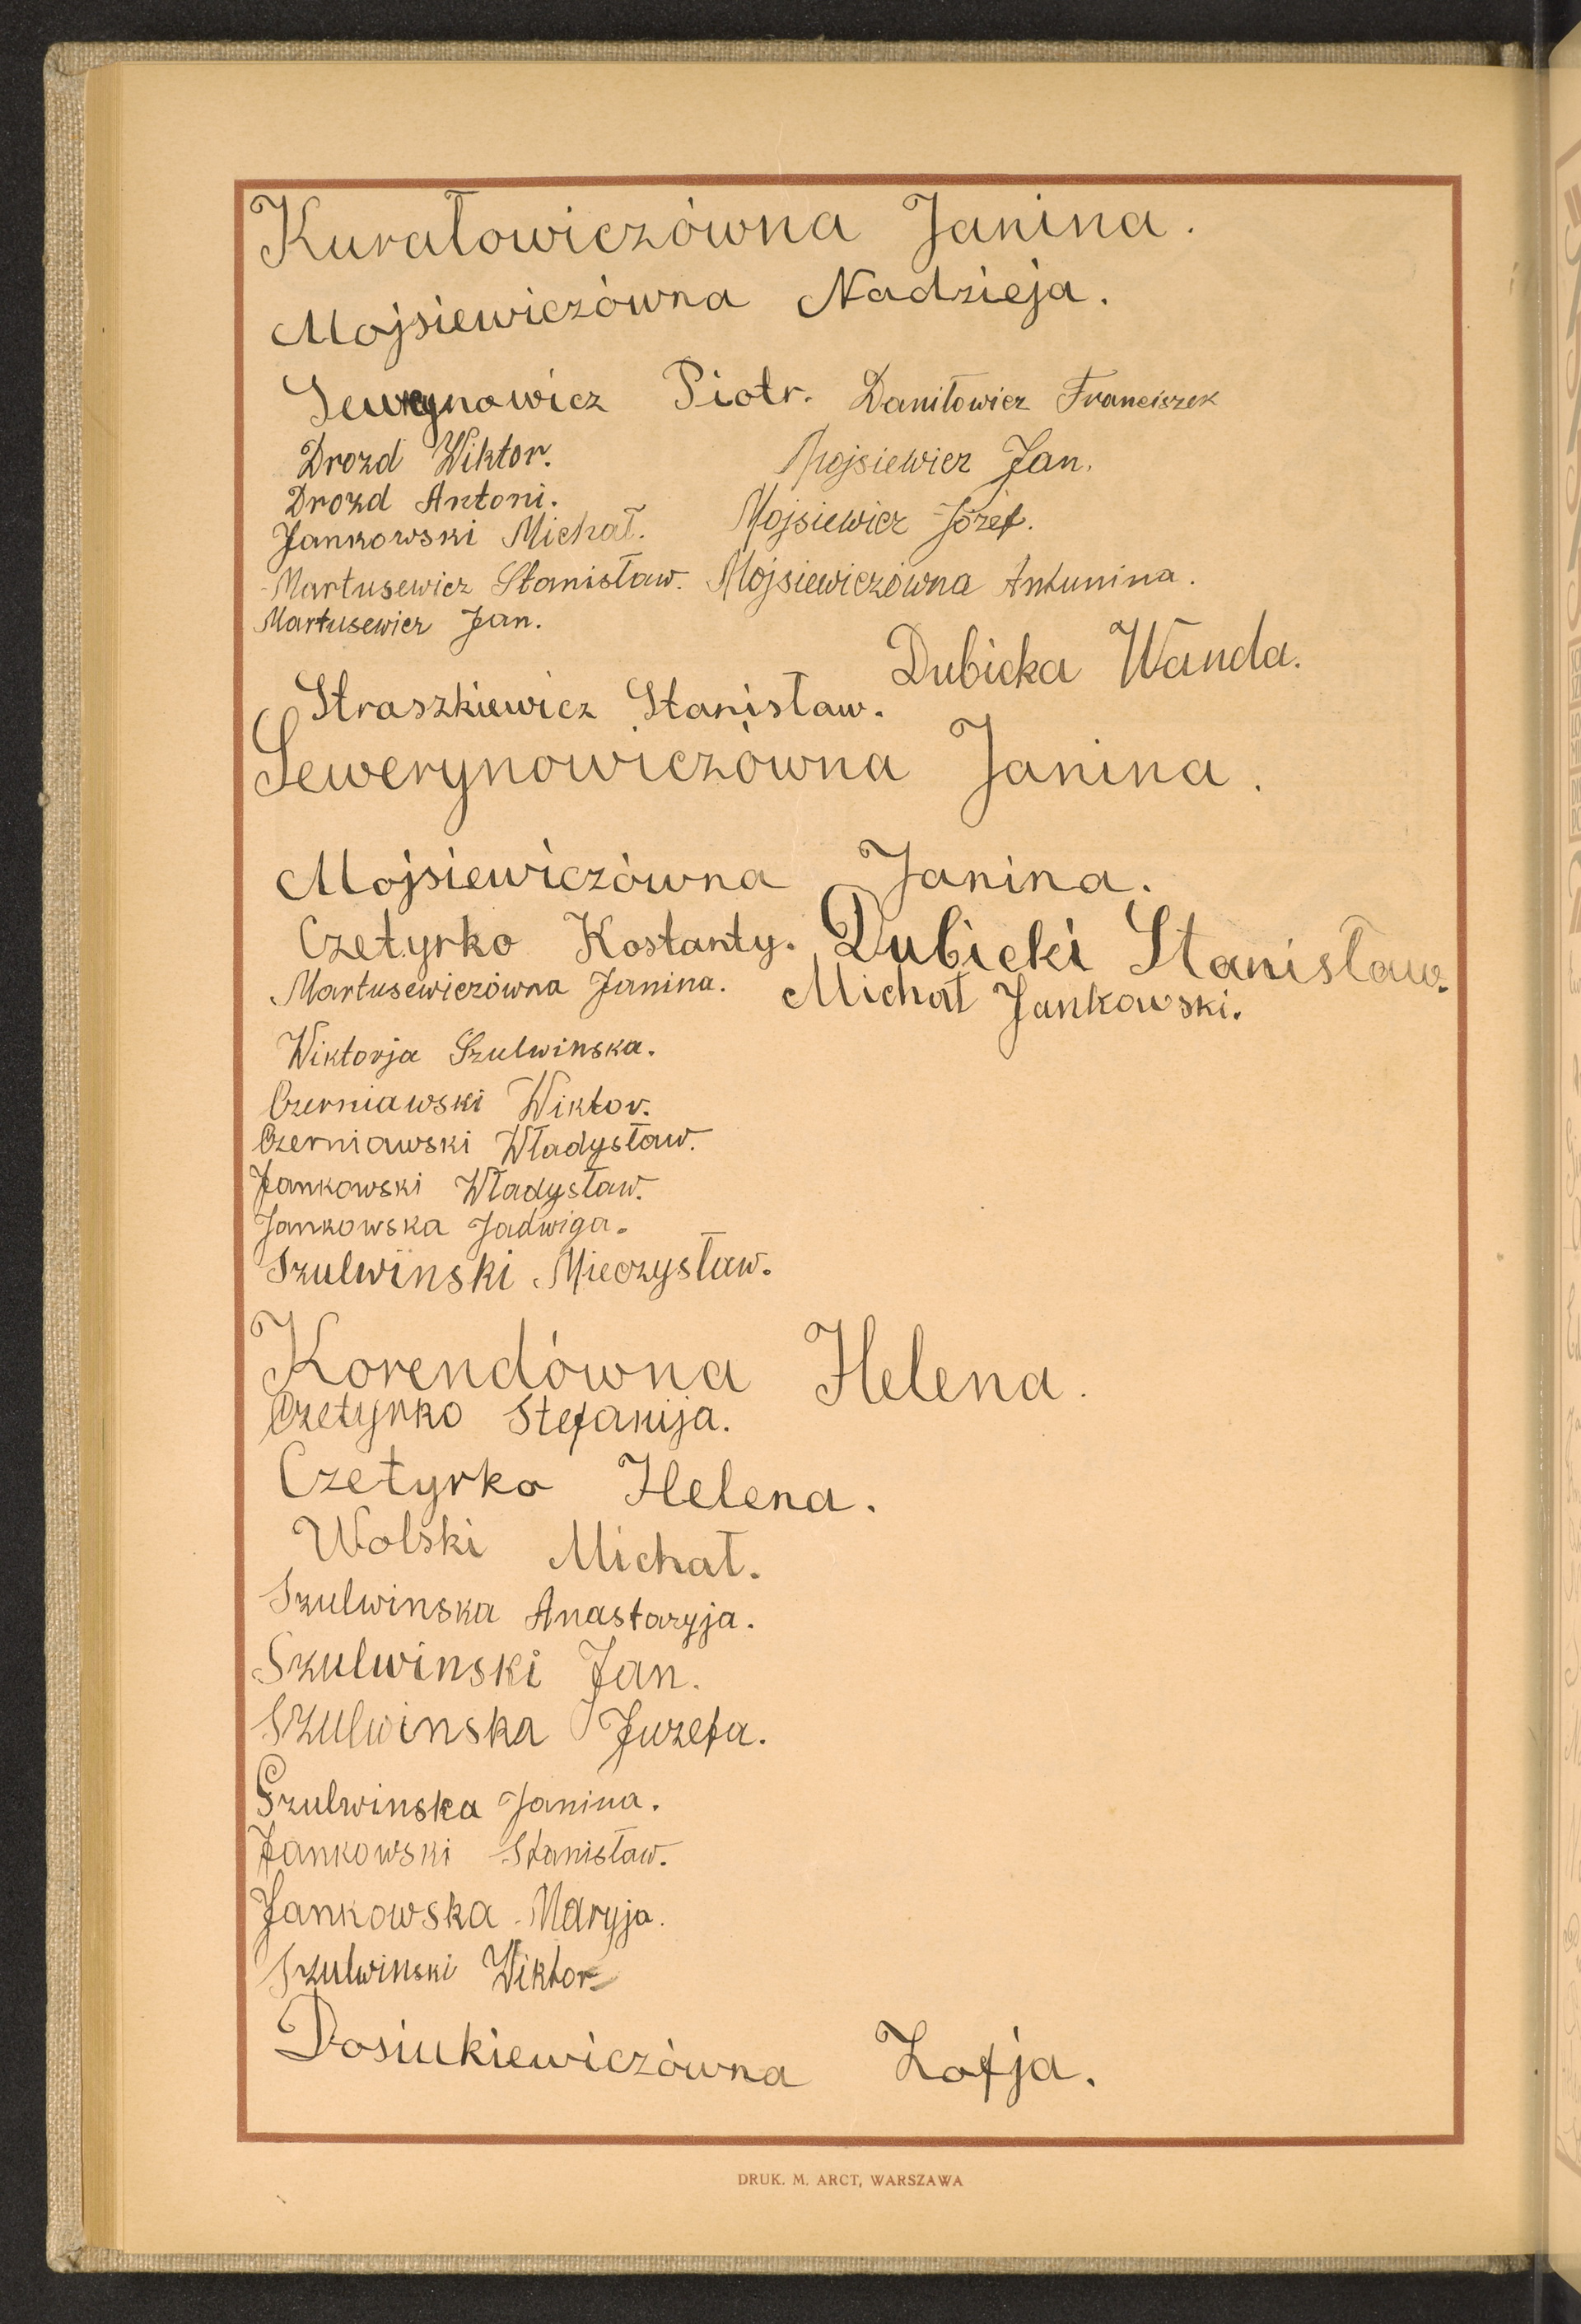 Kurałowiczówna Janina.
Mojsiewiczówna Nadzieja.
Sewrynowicz Piotr. Daniłowicz Franciszek
Drozd Wiktor. Mojsiewicz Jan.
Drozd Antoni.
Jankowski Michał. Mojsiewicz Józef.
Martusewicz Stanisław. Mojsiewiczówna Antunina.
Martusewicz Jan.
Dubicka Wanda.
Straszkiewicz Stanisław.
Sewerynowiczówna Janina.
Mojsiewiczówna Janina.
Czetyrko Kostanty. Dubicki Stanisław.
Martusewiczówna Janina. Michał Jankowski.
Wiktorja Szulwinska.
Czerniawski Wiktor.
Czerniawski Władysław.
Jankowski Władysław.
Jankowska Jadwiga.
Szulwinski Mieczysław.
Korendówna Helena.
Czetyrko Stefanija.
Czetyrko Helena.
Wolski Michał.
Szulwinska Anastazyja.
Szulwinski Jan.
Szulwinska Juzefa.
Szulwinska Janina.
Jankowski Stanisław.
Jankowska Maryja.
Szulwinski Wiktor
Dosiukiewiczówna Zofja.
DRUK. M. ARCT, WARSZAWA